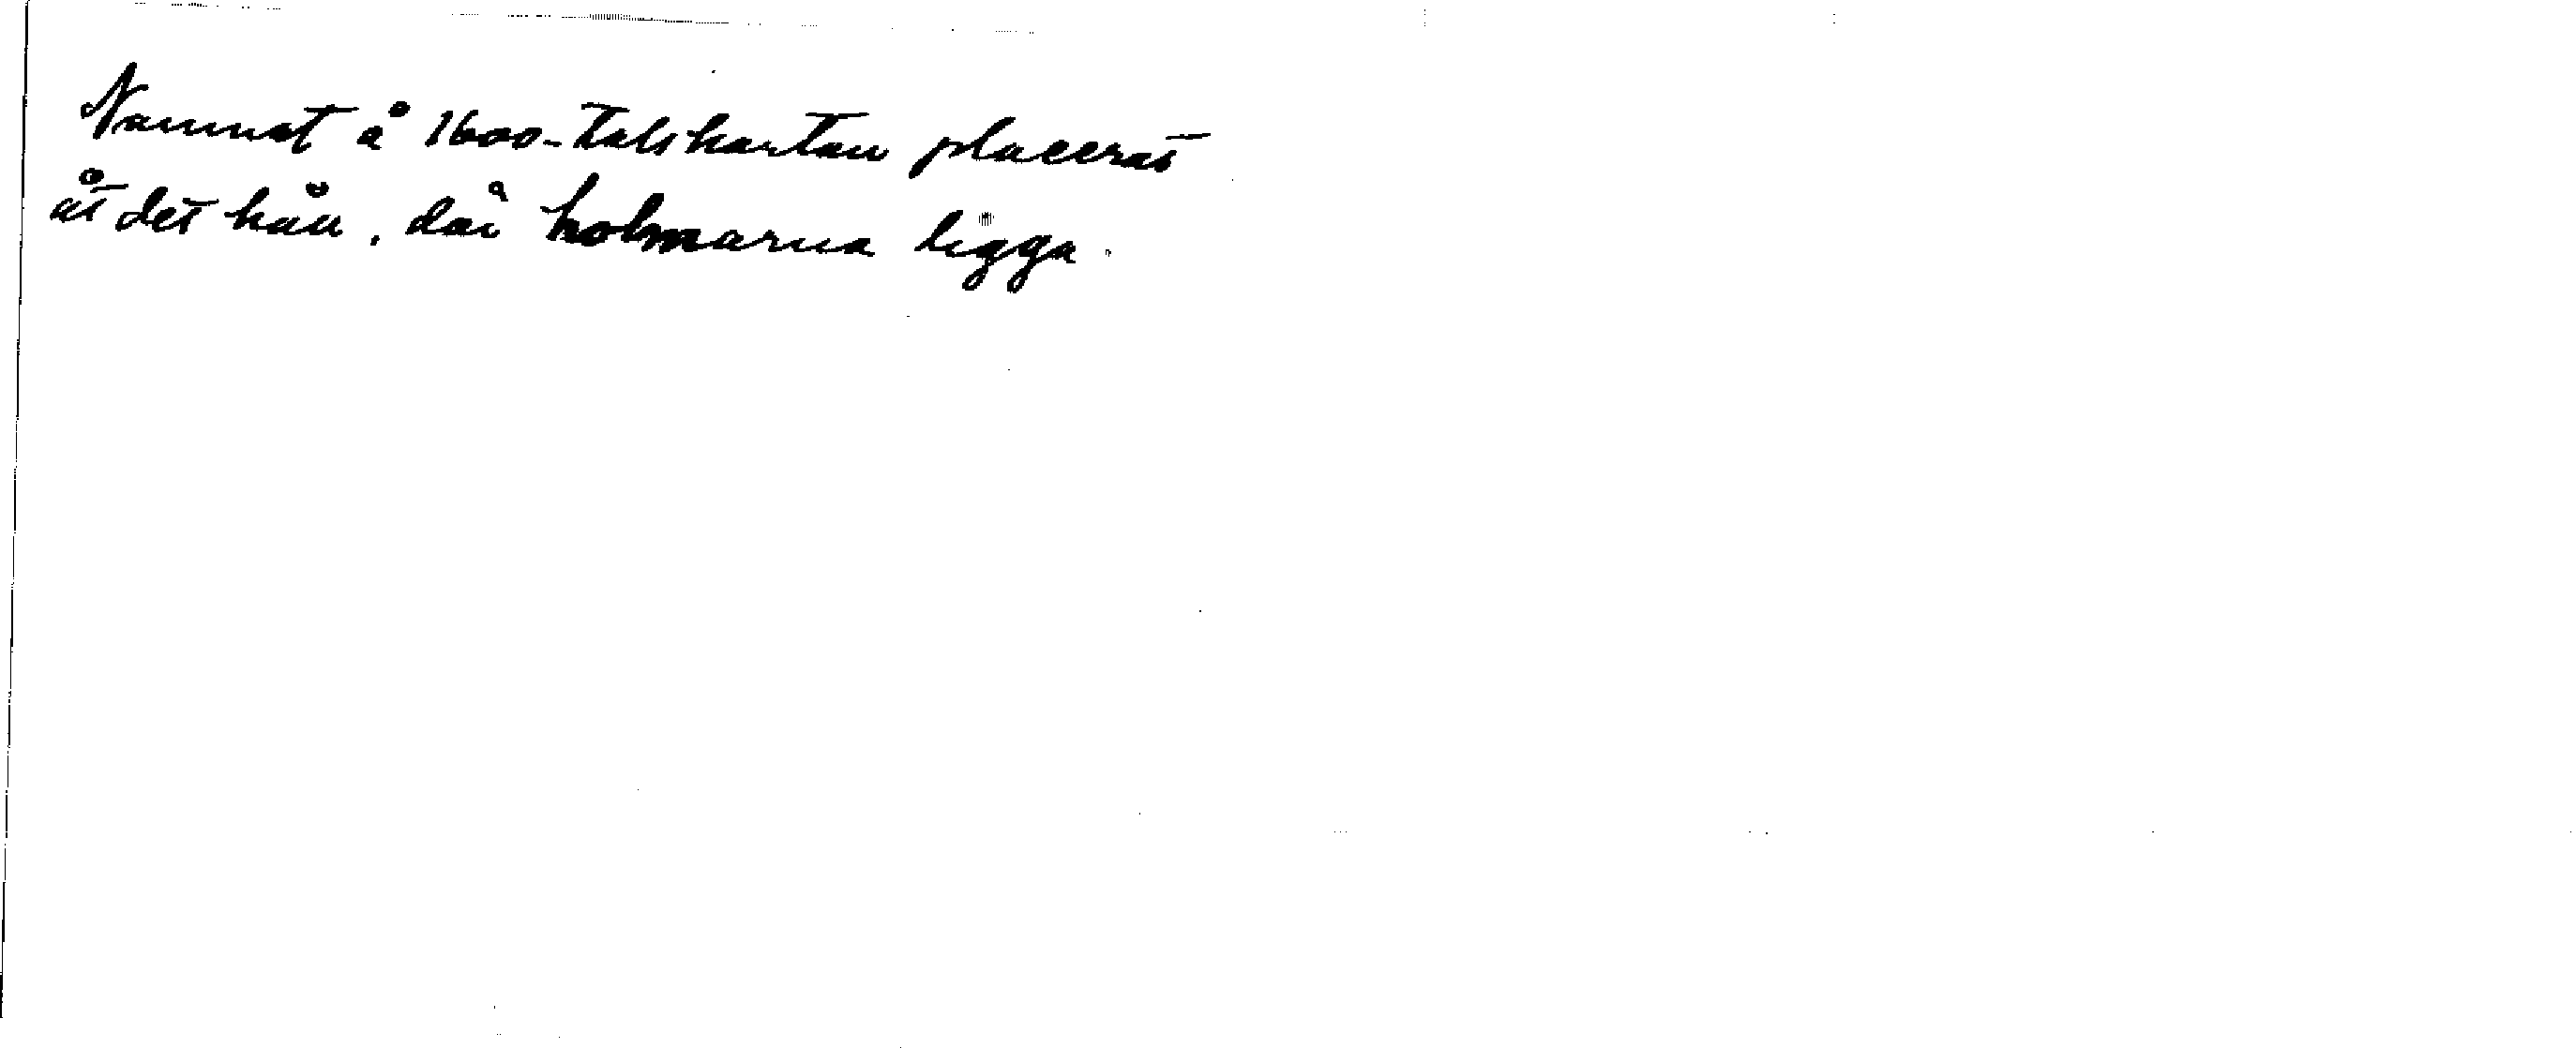 Namnet å 1600-talskartan placerat
åt det håll, där holmarna ligga.